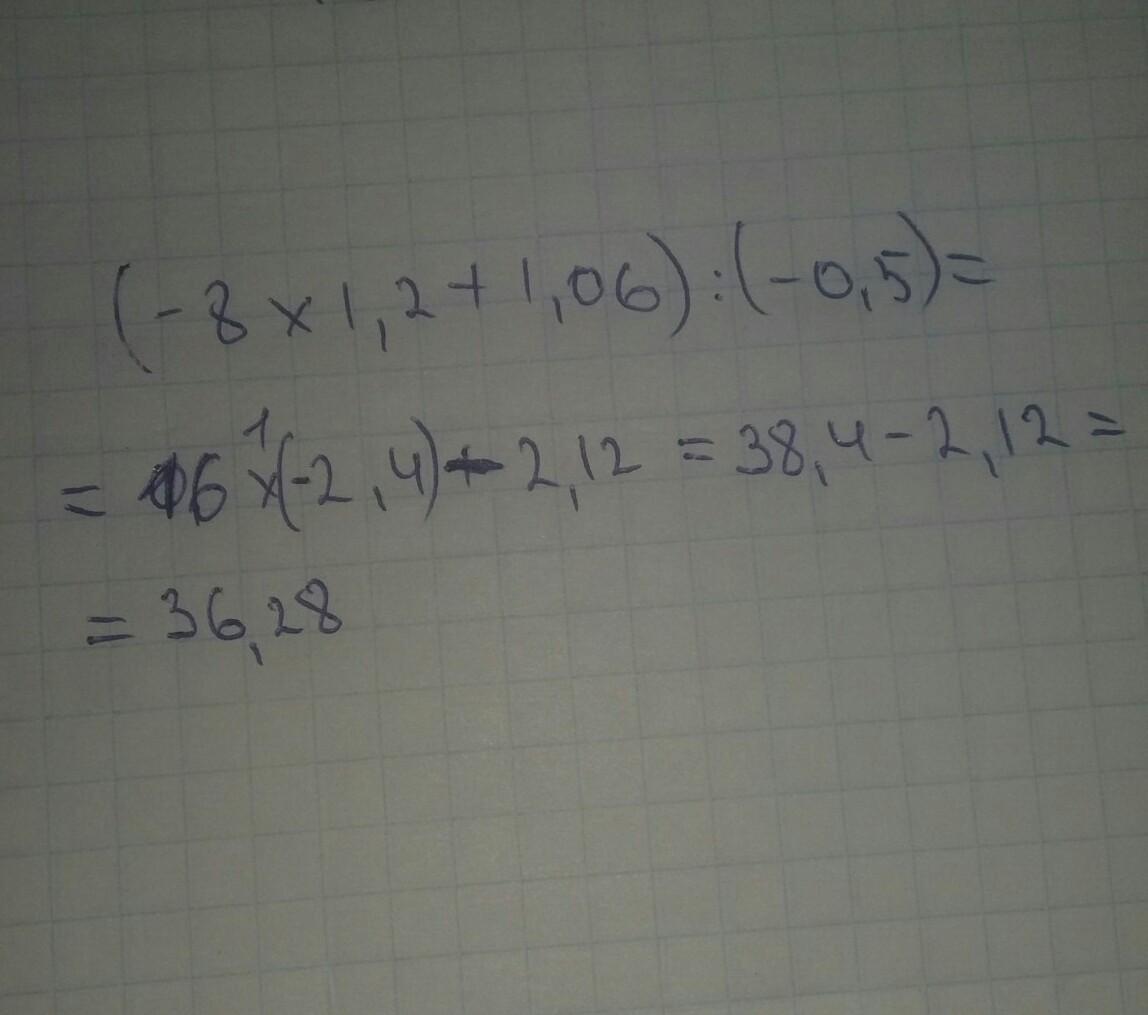 (-8 × 1,2 + 1,06) : (-0,5) =
= 16 × (-2,4) - 2,12 = 38,4 - 2,12 =
= 36,28